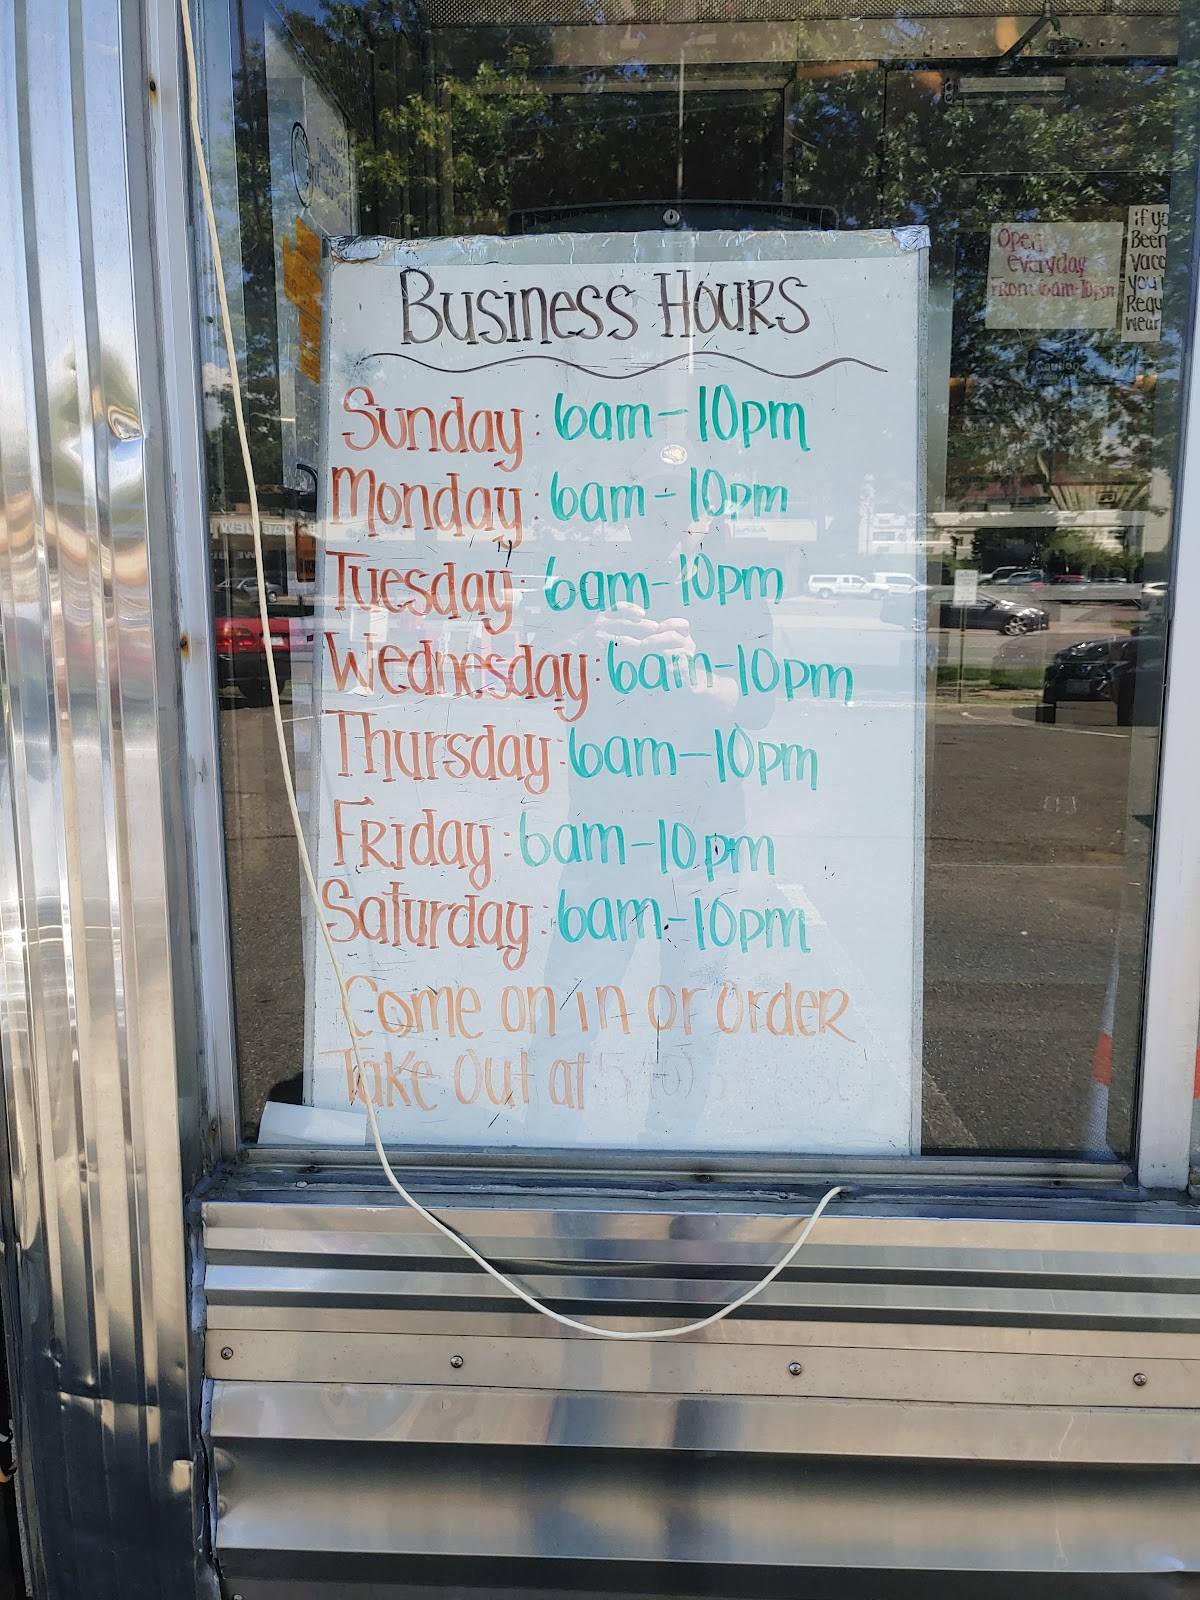 Business Hours
Sunday: 6am-10pm
Monday: 6am-10pm
Tuesday: 6am-10pm
Wednesday: 6am-10pm
Thursday: 6am-10pm
Friday: 6am-10pm
Saturday: 6am-10pm
Come on in or order
Take Out at
Open
everyday
From 6am-10pm
if yo
Been
vacc
you
Requ
wear